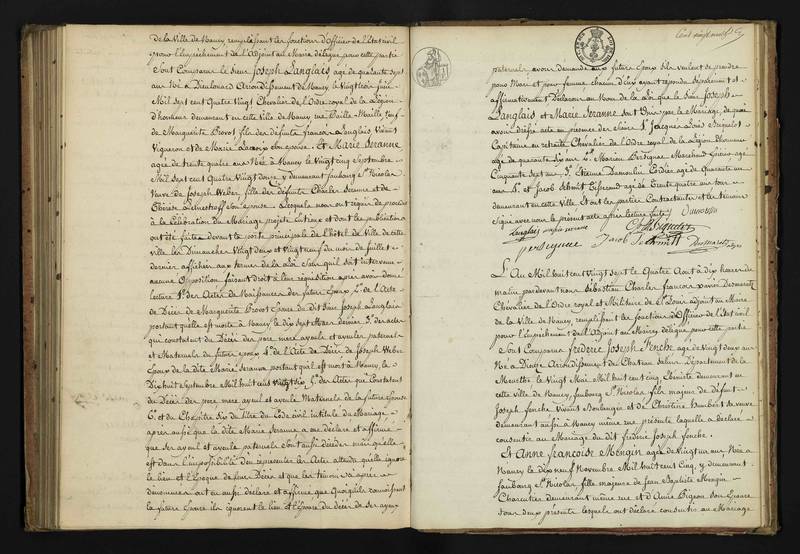 de la Ville de Nancy remplissant les fonctions d'Officier de l'Etat civil
pour l'empêchement de l'Adjoint au Maire délégué pour cette partie
Sont Comparus le Sieur Joseph Langlais, agé de quarante sept
ans Né à Dieulouard Arrondissement de Nancy, le vingt trois juin
Mil sept cent quatre vingt Chevalier de l'Ordre royal de la Légion
d'honneur demeurant en cette Ville de Nancy rue veuf
de Marguerite Provot, fils des défunts françois Langlais, vivant
Vigneron et de Marie son épouse. Et Marie Seranne
agée de trente quatre ans Née à Nancy le vingt cinq Septembre
Mil sept cent quatre vingt douze y demeurant faubourg St Nicolas
Veuve de Joseph Weber, fille des défunts Charles Seranne et de
son épouse. Lesquels nous ont requis de procéder
à la Célébration du Mariage projeté entre eux et dont les publications
ont été faites devant la porte principale de l'hôtel de Ville de cette
ville les Dimanches vingt deux et vingt neuf du mois de juillet
dernier affichées aux termes de la loi sans qu'il soit intervenu
aucune Opposition faisant droit à leur réquisition après avoir donné
lecture 1o des Actes de Naissances des futurs époux 2o de l'Acte
de Décès de Marguerite Provot Epouse du dit Sieur Joseph Langlais
portant qu'elle est morte à Nancy, le dix sept Mars dernier 3o des actes
qui constatent du Décès des père mère ayeuls et ayeules paternels
et Maternels du futur époux 4o de l'Acte de Décès de Joseph Weber
Epoux de la dite Marie Seranne portant qu'il est mort à Nancy, le
Dix huit Septembre Mil huit cent vingt six 5o des Actes qui Constatent
du Décès des père mère ayeul et ayeule Maternels de la future épouse
6o et du Chapitre six du titre du Code civil intitulé du Mariage
après aussi que la dite Marie Seranne a déclaré et affirmé
que ses ayeul et ayeule paternels sont aussi décédés mais qu'elle
est dans l'impossibilité d'en représenter les Actes attendu qu'elle ignore
le lieu et l'Epoque de leur Décès et que les témoins ci après
dénommés ont aussi déclaré et affirmé que Quoiqu'ils connoissent
la future épouse ils ignorent le lieu et l'époque du décès de ses ayeux
Cent vingt neuf
paternels avons demandé aux futurs époux s'ils veulent se prendre
pour Mari et pour femme chacun d'eux ayant répondu séparément et
affirmativement Déclarons au Nom de la Loi que les Sieur Joseph
Langlais, et Marie Seranne sont Unis par le Mariage, de quoi
avons dressé acte en présence des Sieurs 1o Jacques Louis
Capitaine en retraite Chevalier de l'Ordre royal de la Légion d'honneur
agé de quarante dix ans 2o Marchand agé de
Cinquante Sept ans 3o Etienne Cordier agé de Quarante un
ans 4o et Jacob Schmitt Tisserand agé de Trente quatre ans tous
demeurant en cette Ville. Et ont les parties Contractantes et les témoins
signé avec nous le présent acte après lecture faite
Langlais marie seranne
Jacob Schmitt
L'An Mil huit cent vingt sept le Quatre Aout à dix heures du
matin par devant nous Sébastien Charles françois xavier Desmarets
Chevalier de l'Ordre royal et Militaire de St Louis adjoint au Maire
de la Ville de Nancy, remplissant les fonctions d'Officier de l'Etat civil
pour l'Empêchement de l'Adjoint au Maire délégué pour cette partie
Sont Comparus frederic Joseph Fonche agé de vingt deux ans
Né à Dieuze Arrondissement de Chateau Salins Département de la
Meurthe le vingt Mai Mil huit cent cinq Ebéniste demeurant en
cette ville de Nancy, faubourg St Nicolas fils majeur de défunt
Joseph fonche vivant Boulanger et de Christine humbert sa veuve
demeurant aussi à Nancy même rue présente laquelle a déclaré
consentir au Mariage du dit frederic Joseph fonche.
Et Anne françoise Mengin agée de vingt un ans Née à
Nancy le dix neuf Novembre Mil huit cent Cinq, y demeurant
faubourg St Nicolas, fille majeure de Jean Baptiste Mengin
Charcutier demeurant même rue et d'Anne Pigeon son Epouse
tous deux présents lesquels ont déclaré consentir au Mariage